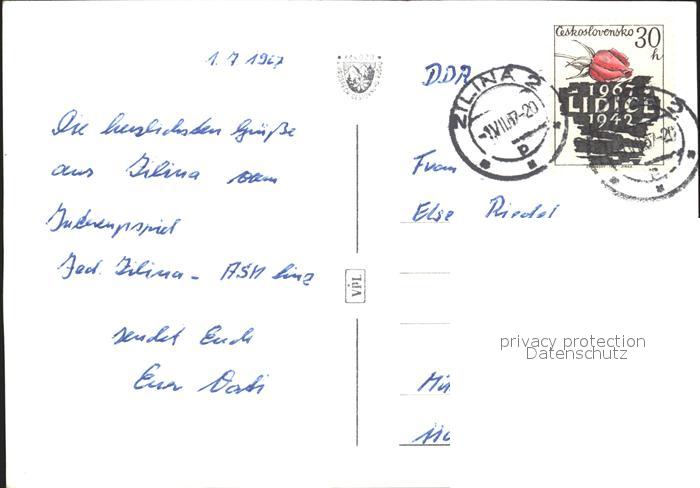 1.7.1967
Die herzlichsten Grüße
aus Zilina vom
Intercupspiel
Jed. Zilina - ASK Linz
sendet Euch
Euer Vati
VpL
DDR
Frau
Else Riedel
Československo 30 h
1967
LIDICE
1942
ŽILINA 2
-1.VII.67-20
privacy protection
Datenschutz